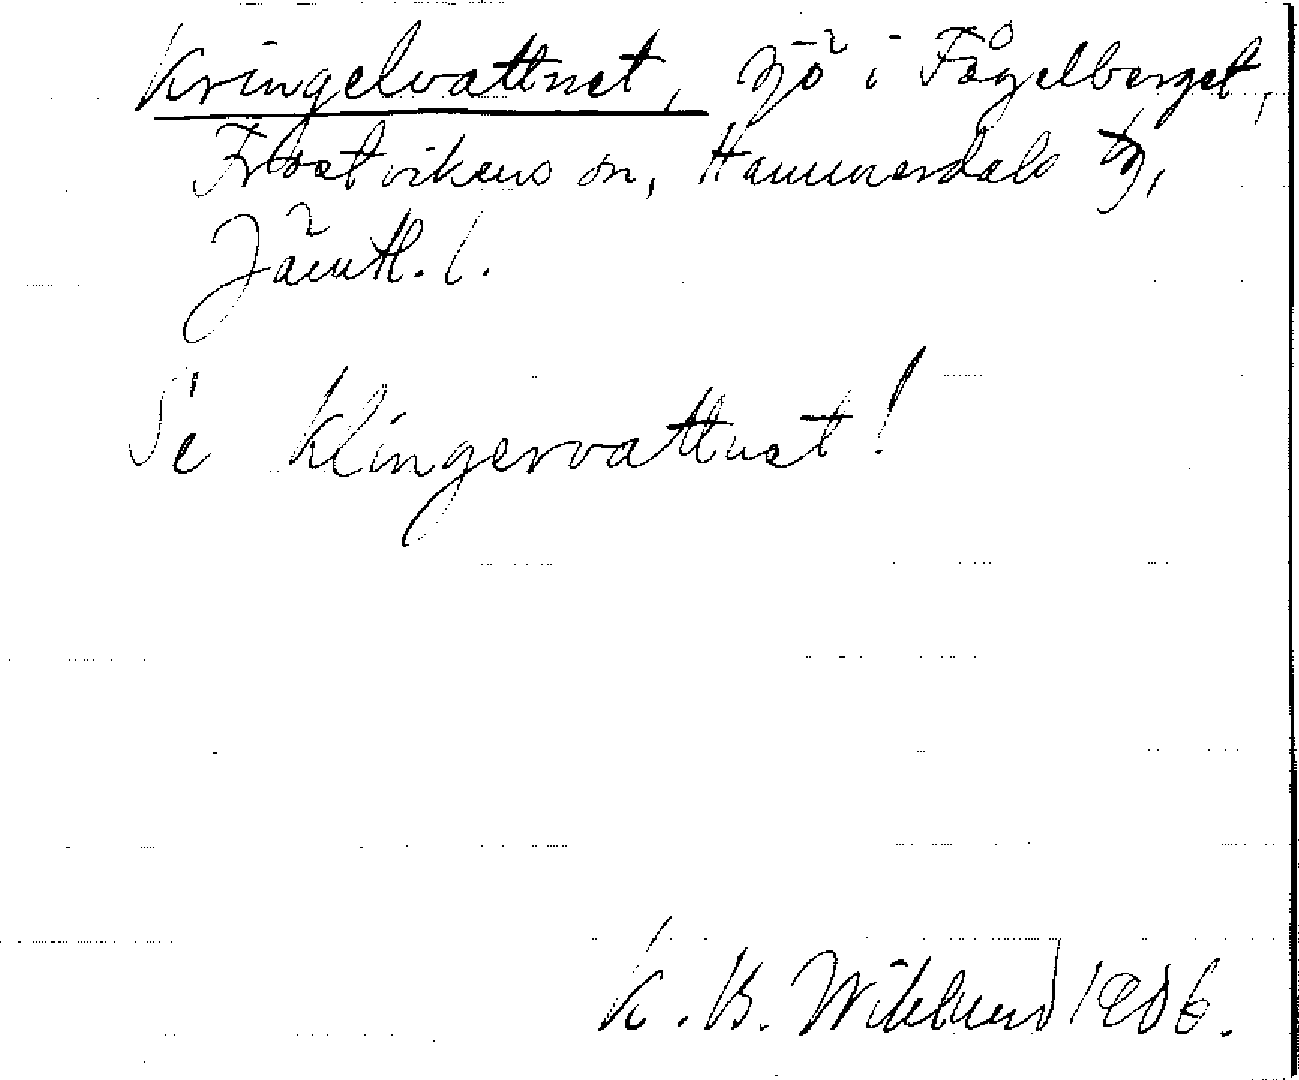 Kringelvattnet, sjö i Fågelberget,
Frostvikens sn, Hammerdals tg,
Jämtl. l.
Se Klingervattnet!
K. B. Wiklund 1906.